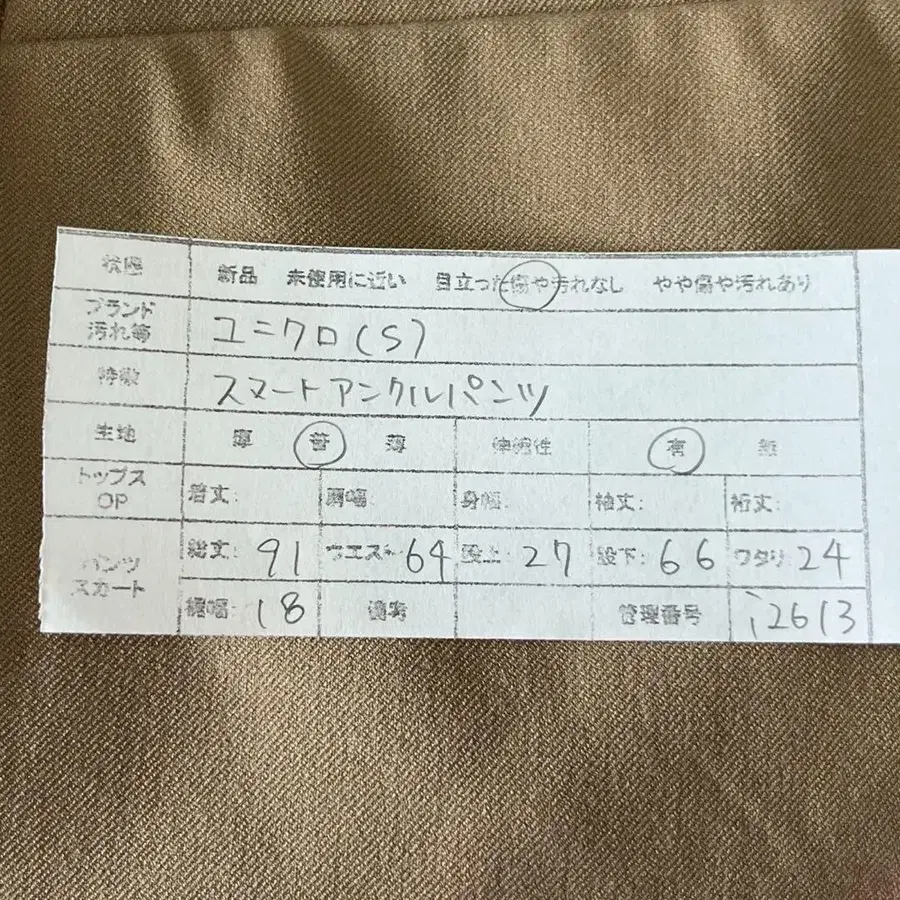 状態 新品 未使用に近い 目立った傷や汚れなし やや傷や汚れあり
ブランド
汚れ等 ユニクロ(S)
特徴 スマートアンクルパンツ
生地 厚 普 薄 伸縮性 有 無
トップス
OP 着丈: 肩幅: 身幅: 袖丈: 裄丈:
パンツ
スカート 総丈: 91 ウエスト: 64 股上: 27 股下: 66 ワタリ: 24
裾幅: 18 備考 管理番号 i2613